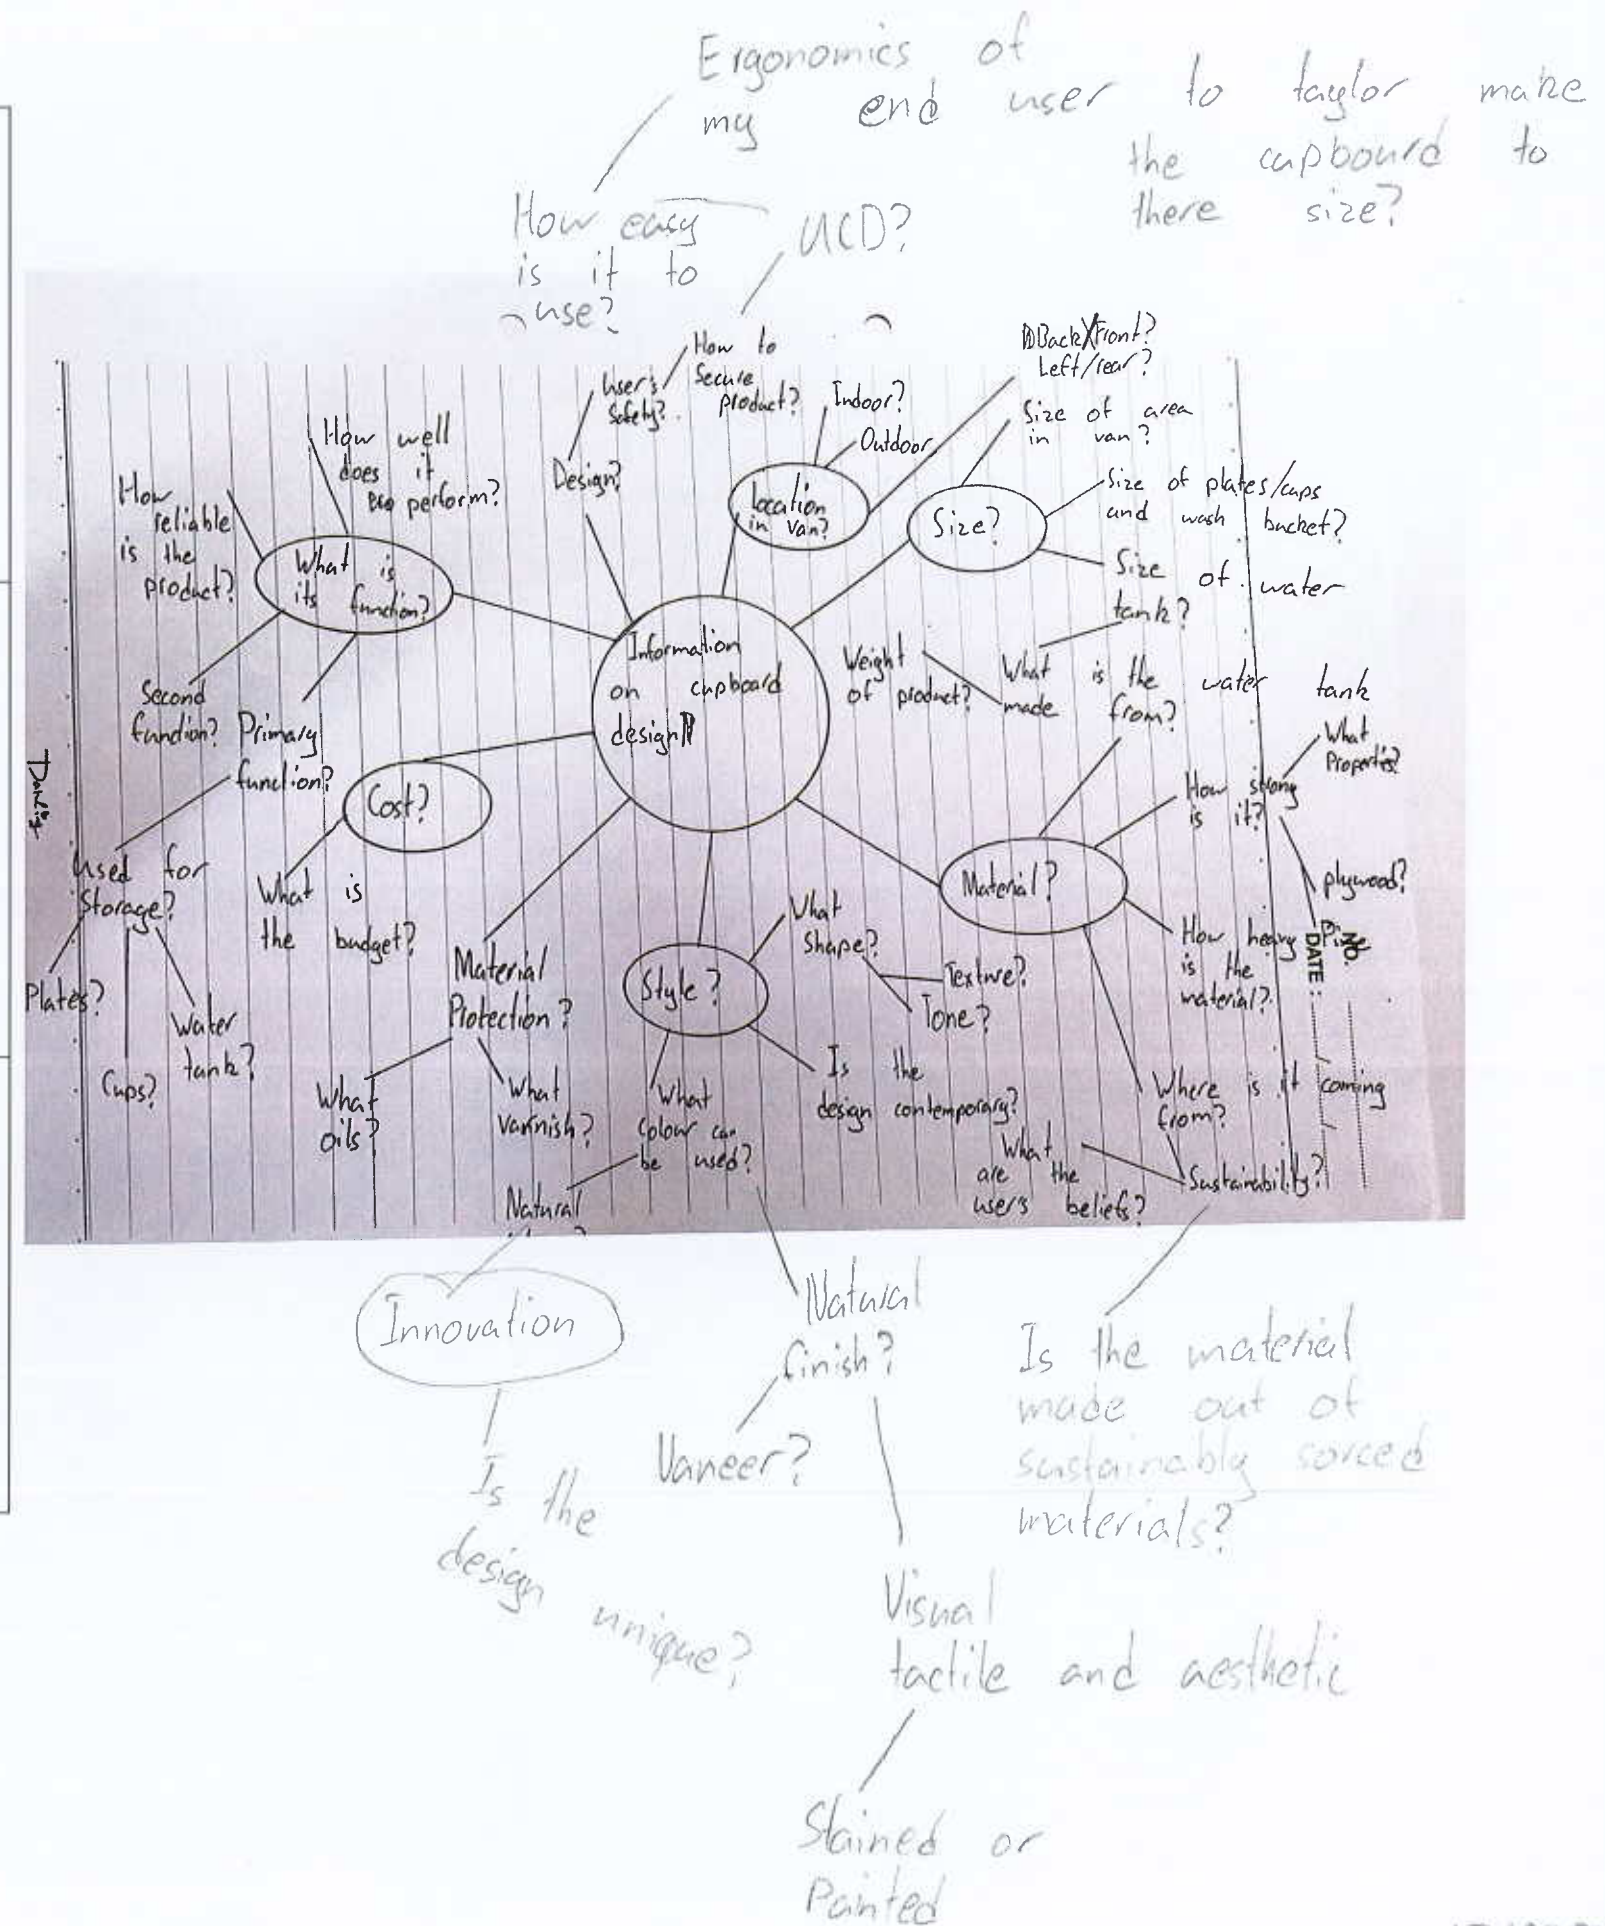 Ergonomics of
my end user to taylor make
the cupbourd to
there size?
How easy
is it to
use?
UCD?
How to
Secure
product?
User's
Safety?
Design?
Indoor?
Outdoor
Location
in van?
Back/Front?
Left/rear?
Size of area
in van?
Size?
Size of plates/cups
and wash bucket?
Size of water
tank?
What is the water tank
made from?
Weight
of product?
How well
does it
perform?
How
reliable
is the
product?
What is
its function?
Second
function?
Primary
function?
Used for
Storage?
Plates?
Cups?
Water
tank?
Information
on cupboard
design
Cost?
What is
the budget?
Material
Protection?
What
oils?
What
varnish?
Style?
What
Shape?
Texture?
Tone?
Is the
design contemporary?
What
Colour can
be used?
Natural
Material?
How strong
is it?
What
Properties?
plywood?
Pine
How heavy
is the
material?
Where is it coming
from?
Sustainability?
What
are the
user's beliefs?
NO.
DATE:
Innovation
Is the
design unique?
Natural
finish?
Vaneer?
Visual
tactile and aesthetic
Stained or
Painted
Is the material
made out of
sustainably sorced
materials?